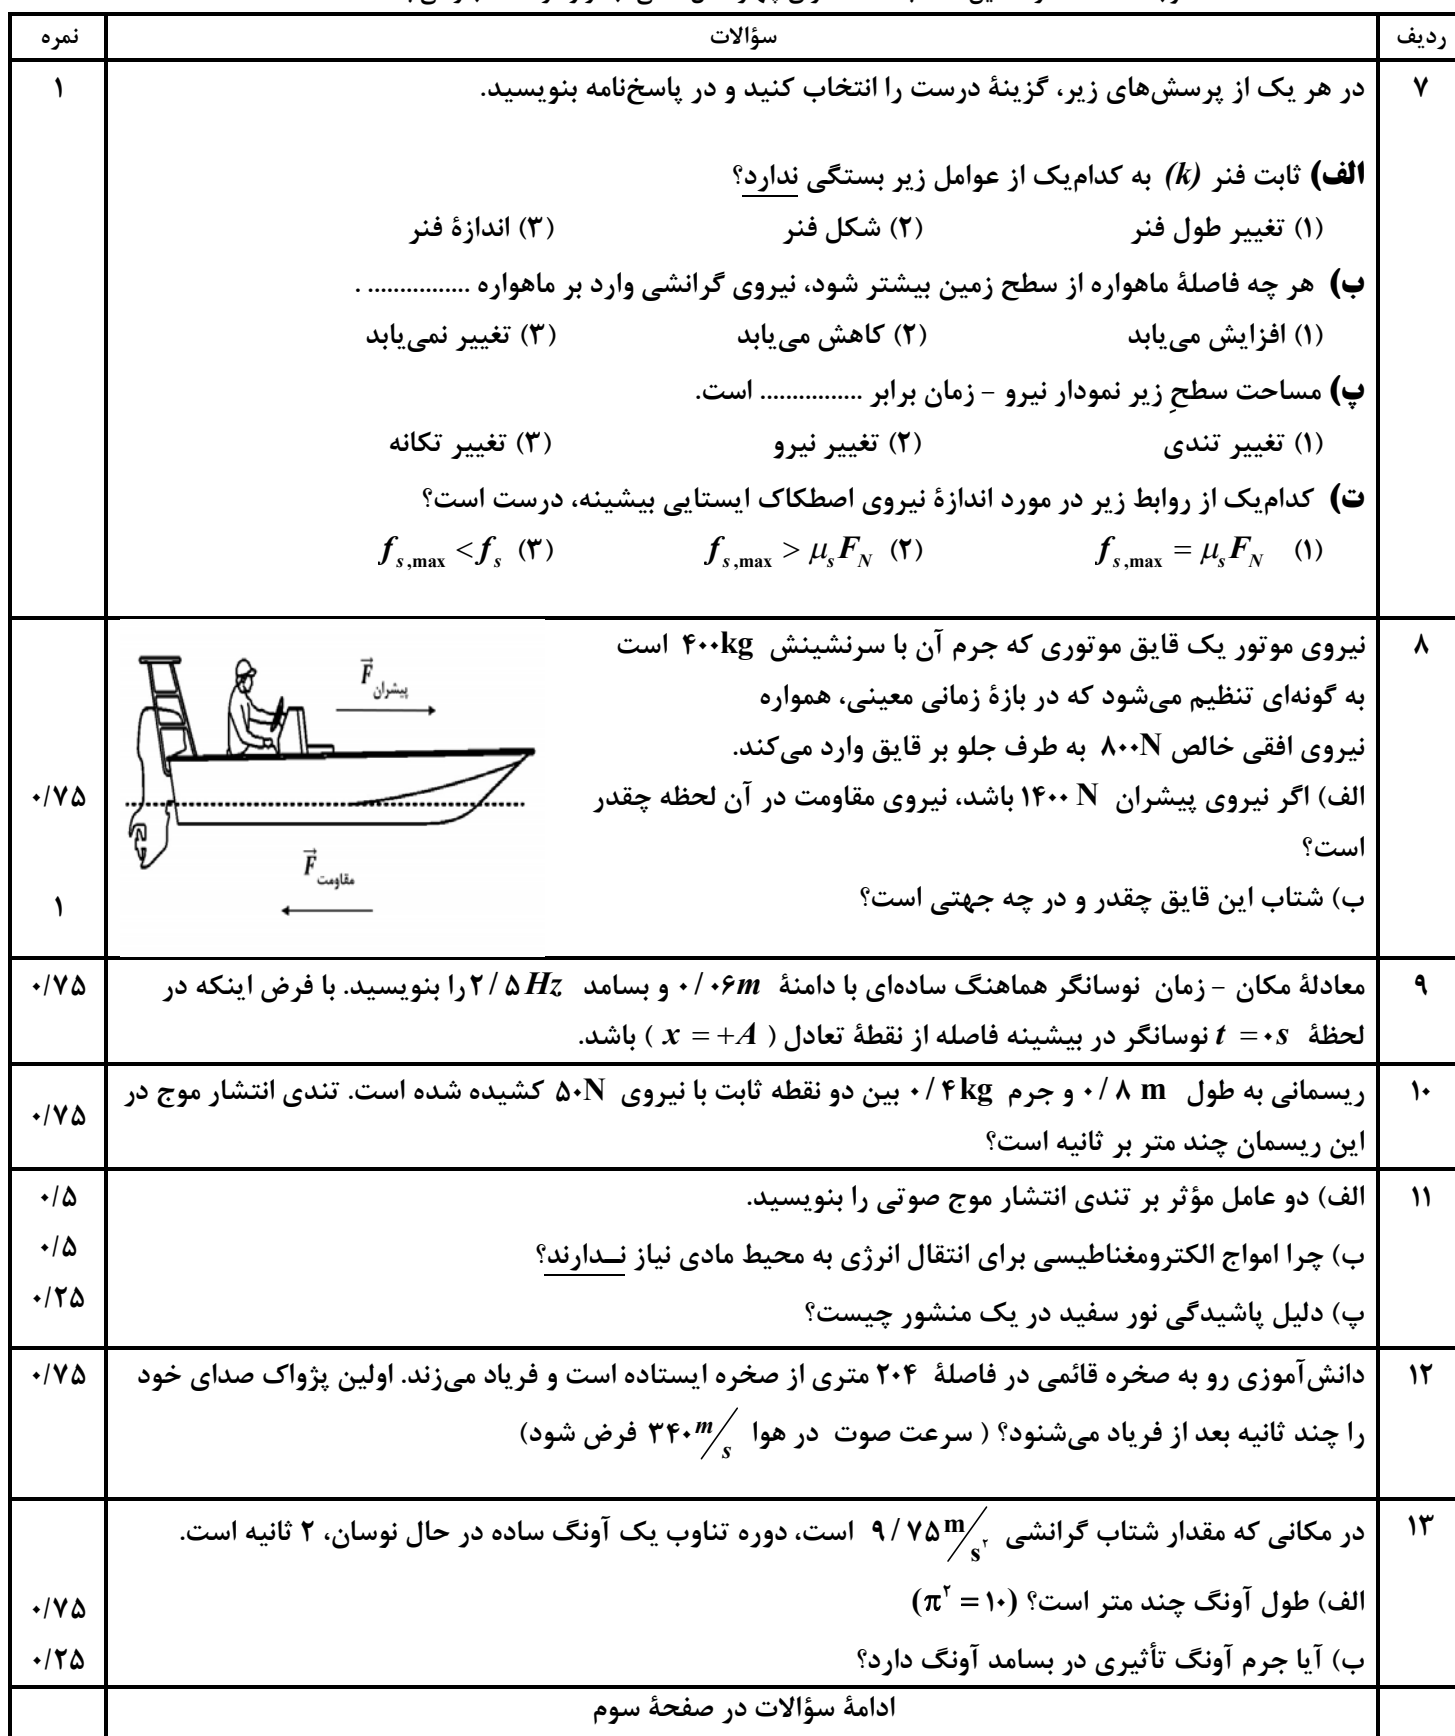 ردیف سؤالات نمره
۷ در هر یک از پرسش‌های زیر، گزینۀ درست را انتخاب کنید و در پاسخ‌نامه بنویسید. ۱
الف) ثابت فنر (k) به کدام‌یک از عوامل زیر بستگی ندارد؟
(۱) تغییر طول فنر (۲) شکل فنر (۳) اندازۀ فنر
ب) هر چه فاصلۀ ماهواره از سطح زمین بیشتر شود، نیروی گرانشی وارد بر ماهواره ................ .
(۱) افزایش می‌یابد (۲) کاهش می‌یابد (۳) تغییر نمی‌یابد
پ) مساحت سطحِ زیر نمودار نیرو – زمان برابر ................ است.
(۱) تغییر تندی (۲) تغییر نیرو (۳) تغییر تکانه
ت) کدام‌یک از روابط زیر در مورد اندازۀ نیروی اصطکاک ایستایی بیشینه، درست است؟
(۱) f_{s,max} = μ_s F_N (۲) f_{s,max} > μ_s F_N (۳) f_{s,max} < f_s
۸ نیروی موتور یک قایق موتوری که جرم آن با سرنشینش ۴۰۰kg است
به گونه‌ای تنظیم می‌شود که در بازۀ زمانی معینی، همواره
نیروی افقی خالص ۸۰۰N به طرف جلو بر قایق وارد می‌کند.
الف) اگر نیروی پیشران ۱۴۰۰ N باشد، نیروی مقاومت در آن لحظه چقدر ۰/۷۵
است؟
ب) شتاب این قایق چقدر و در چه جهتی است؟ ۱
F⃗ پیشران
F⃗ مقاومت
۹ معادلۀ مکان – زمان نوسانگر هماهنگ ساده‌ای با دامنۀ ۰/۰۶m و بسامد ۲/۵Hz را بنویسید. با فرض اینکه در ۰/۷۵
لحظۀ t = ۰s نوسانگر در بیشینه فاصله از نقطۀ تعادل ( x = +A ) باشد.
۱۰ ریسمانی به طول ۰/۸ m و جرم ۰/۴kg بین دو نقطه ثابت با نیروی ۵۰N کشیده شده است. تندی انتشار موج در ۰/۷۵
این ریسمان چند متر بر ثانیه است؟
۱۱ الف) دو عامل مؤثر بر تندی انتشار موج صوتی را بنویسید. ۰/۵
ب) چرا امواج الکترومغناطیسی برای انتقال انرژی به محیط مادی نیاز نــدارند؟ ۰/۵
پ) دلیل پاشیدگی نور سفید در یک منشور چیست؟ ۰/۲۵
۱۲ دانش‌آموزی رو به صخره قائمی در فاصلۀ ۲۰۴ متری از صخره ایستاده است و فریاد می‌زند. اولین پژواک صدای خود ۰/۷۵
را چند ثانیه بعد از فریاد می‌شنود؟ ( سرعت صوت در هوا ۳۴۰ m/s فرض شود)
۱۳ در مکانی که مقدار شتاب گرانشی ۹/۷۵ m/s² است، دوره تناوب یک آونگ ساده در حال نوسان، ۲ ثانیه است.
الف) طول آونگ چند متر است؟ (π² = ۱۰) ۰/۷۵
ب) آیا جرم آونگ تأثیری در بسامد آونگ دارد؟ ۰/۲۵
ادامۀ سؤالات در صفحۀ سوم